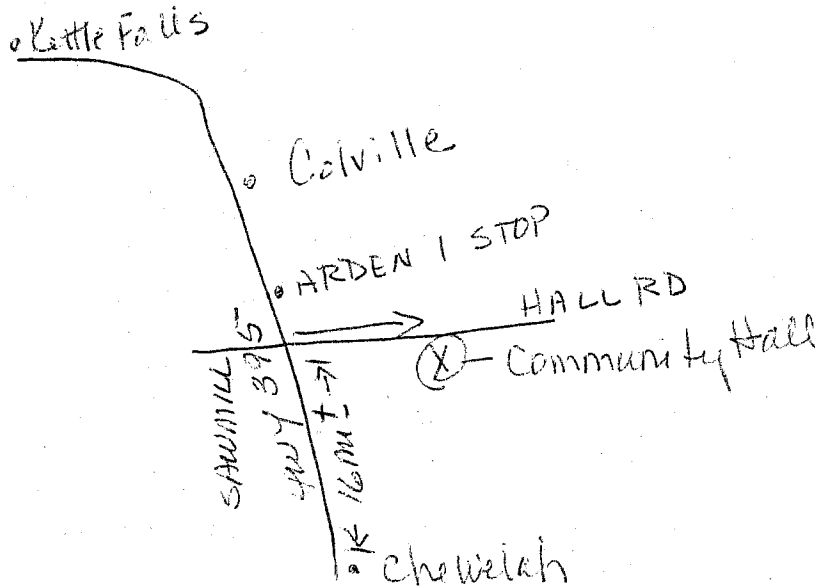 Kettle Falls
Colville
ARDEN 1 STOP
HALL RD
X - Community Hall
SAWMILL
HWY 395
16 mi ±
Chewelah